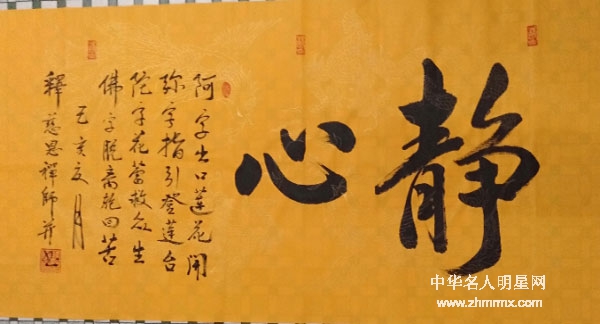 静心
阿字出口蓮花開
弥字指引登蓮台
陀字花蕾救众生
佛字脱离回苦
己亥夏月
釋慈恩禪師并
中华名人明星网
www.zhmrmx.com